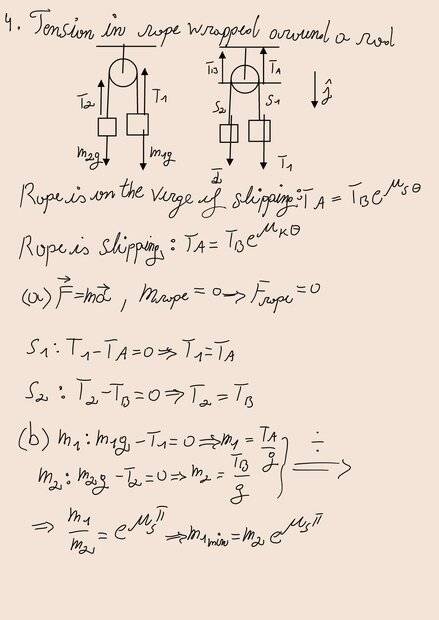 4. Tension in rope wrapped around a rod
T₂ T₁ T_B T_A
S₂ S₁ ĵ
m₂g m₁g T₁
Rope is on the verge of slipping: T_A = T_B e^{μ_s θ}
Rope is slipping: T_A = T_B e^{μ_k θ}
(a) F⃗ = ma⃗ , m_rope = 0 → F_rope = 0
S₁ : T₁ - T_A = 0 ⇒ T₁ = T_A
S₂ : T₂ - T_B = 0 ⇒ T₂ = T_B
(b) m₁ : m₁g - T₁ = 0 ⇒ m₁ = T_A/g } ÷ ⇒
m₂ : m₂g - T₂ = 0 ⇒ m₂ = T_B/g
⇒ m₁/m₂ = e^{μ_s π} ⇒ m₁min = m₂ e^{μ_s π}